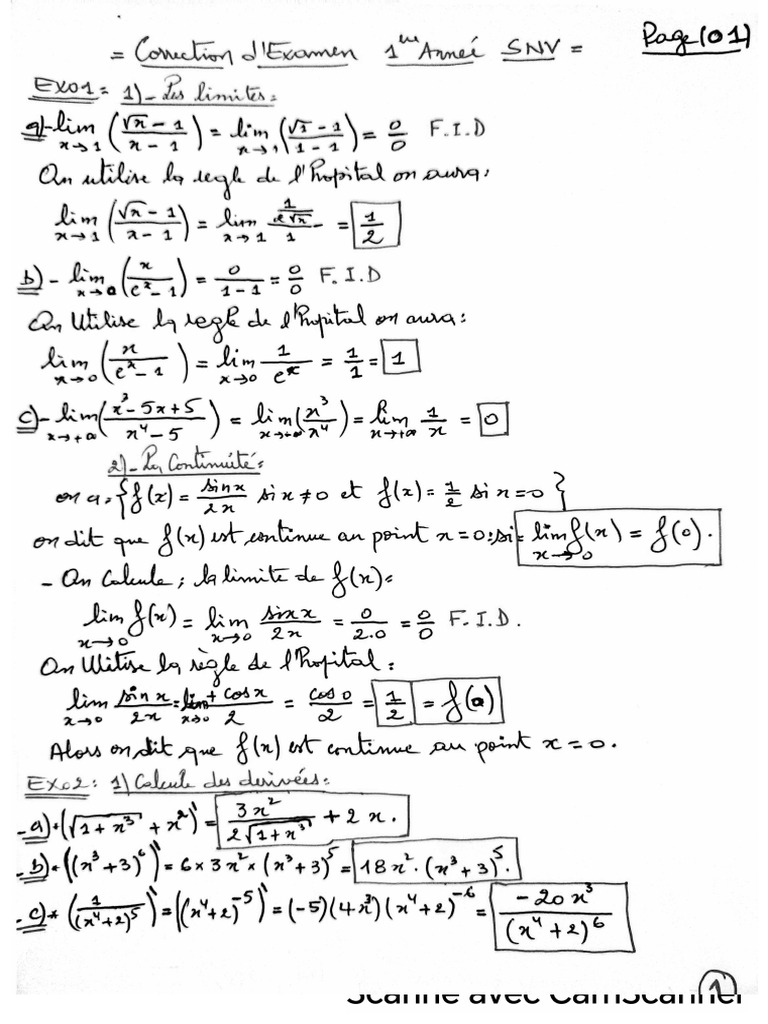 = Correction d'Examen 1ere Anneé SNV = Page(01)
EX01: 1)- Les limites:
a)- lim x→1 ((√x - 1)/(x - 1)) = lim x→1 ((√1 - 1)/(1 - 1)) = 0/0 F.I.D
On utilise la regle de l'hopital on aura:
lim x→1 ((√x - 1)/(x - 1)) = lim x→1 (1/(2√x))/1 = 1/2
b)- lim x→0 (x/(e^x - 1)) = 0/(1-1) = 0/0 F.I.D
On Utilise la regle de l'hopital on aura:
lim x→0 (x/(e^x - 1)) = lim x→0 1/e^x = 1/1 = 1
c)- lim x→+∞ ((x^3 - 5x + 5)/(x^4 - 5)) = lim x→+∞ (x^3/x^4) = lim x→+∞ 1/x = 0
2)- La Continuité:
on a: {f(x) = sinx/2x si x≠0 et f(x) = 1/2 si x=0}
on dit que f(x) est continue au point x=0: si: lim x→0 f(x) = f(0).
- On Calcule; la limite de f(x):
lim x→0 f(x) = lim x→0 sinx/2x = 0/2.0 = 0/0 F.I.D.
On Utilise la règle de l'hopital:
lim x→0 sinx/2x = lim x→0 + cosx/2 = cos0/2 = 1/2 = f(0)
Alors on dit que f(x) est continue au point x=0.
EX02: 1) Calcule des derivées:
- a)• (√(1+x^3) + x^2)' = 3x^2/(2√(1+x^3)) + 2x.
- b)• ((x^3+3)^6)' = 6×3x^2×(x^3+3)^5 = 18x^2.(x^3+3)^5.
- c)* (1/(x^4+2)^5)' = ((x^4+2)^-5)' = (-5)(4x^3)(x^4+2)^-6 = -20x^3/(x^4+2)^6
1
Scanné avec CamScanner